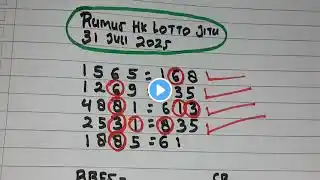 RUMUS HK LOTTO JITU
31 JULI 2025
1565 = 168
1269 = 35
4881 = 613
2531 = 835
1885 = 61
BBFS = CB